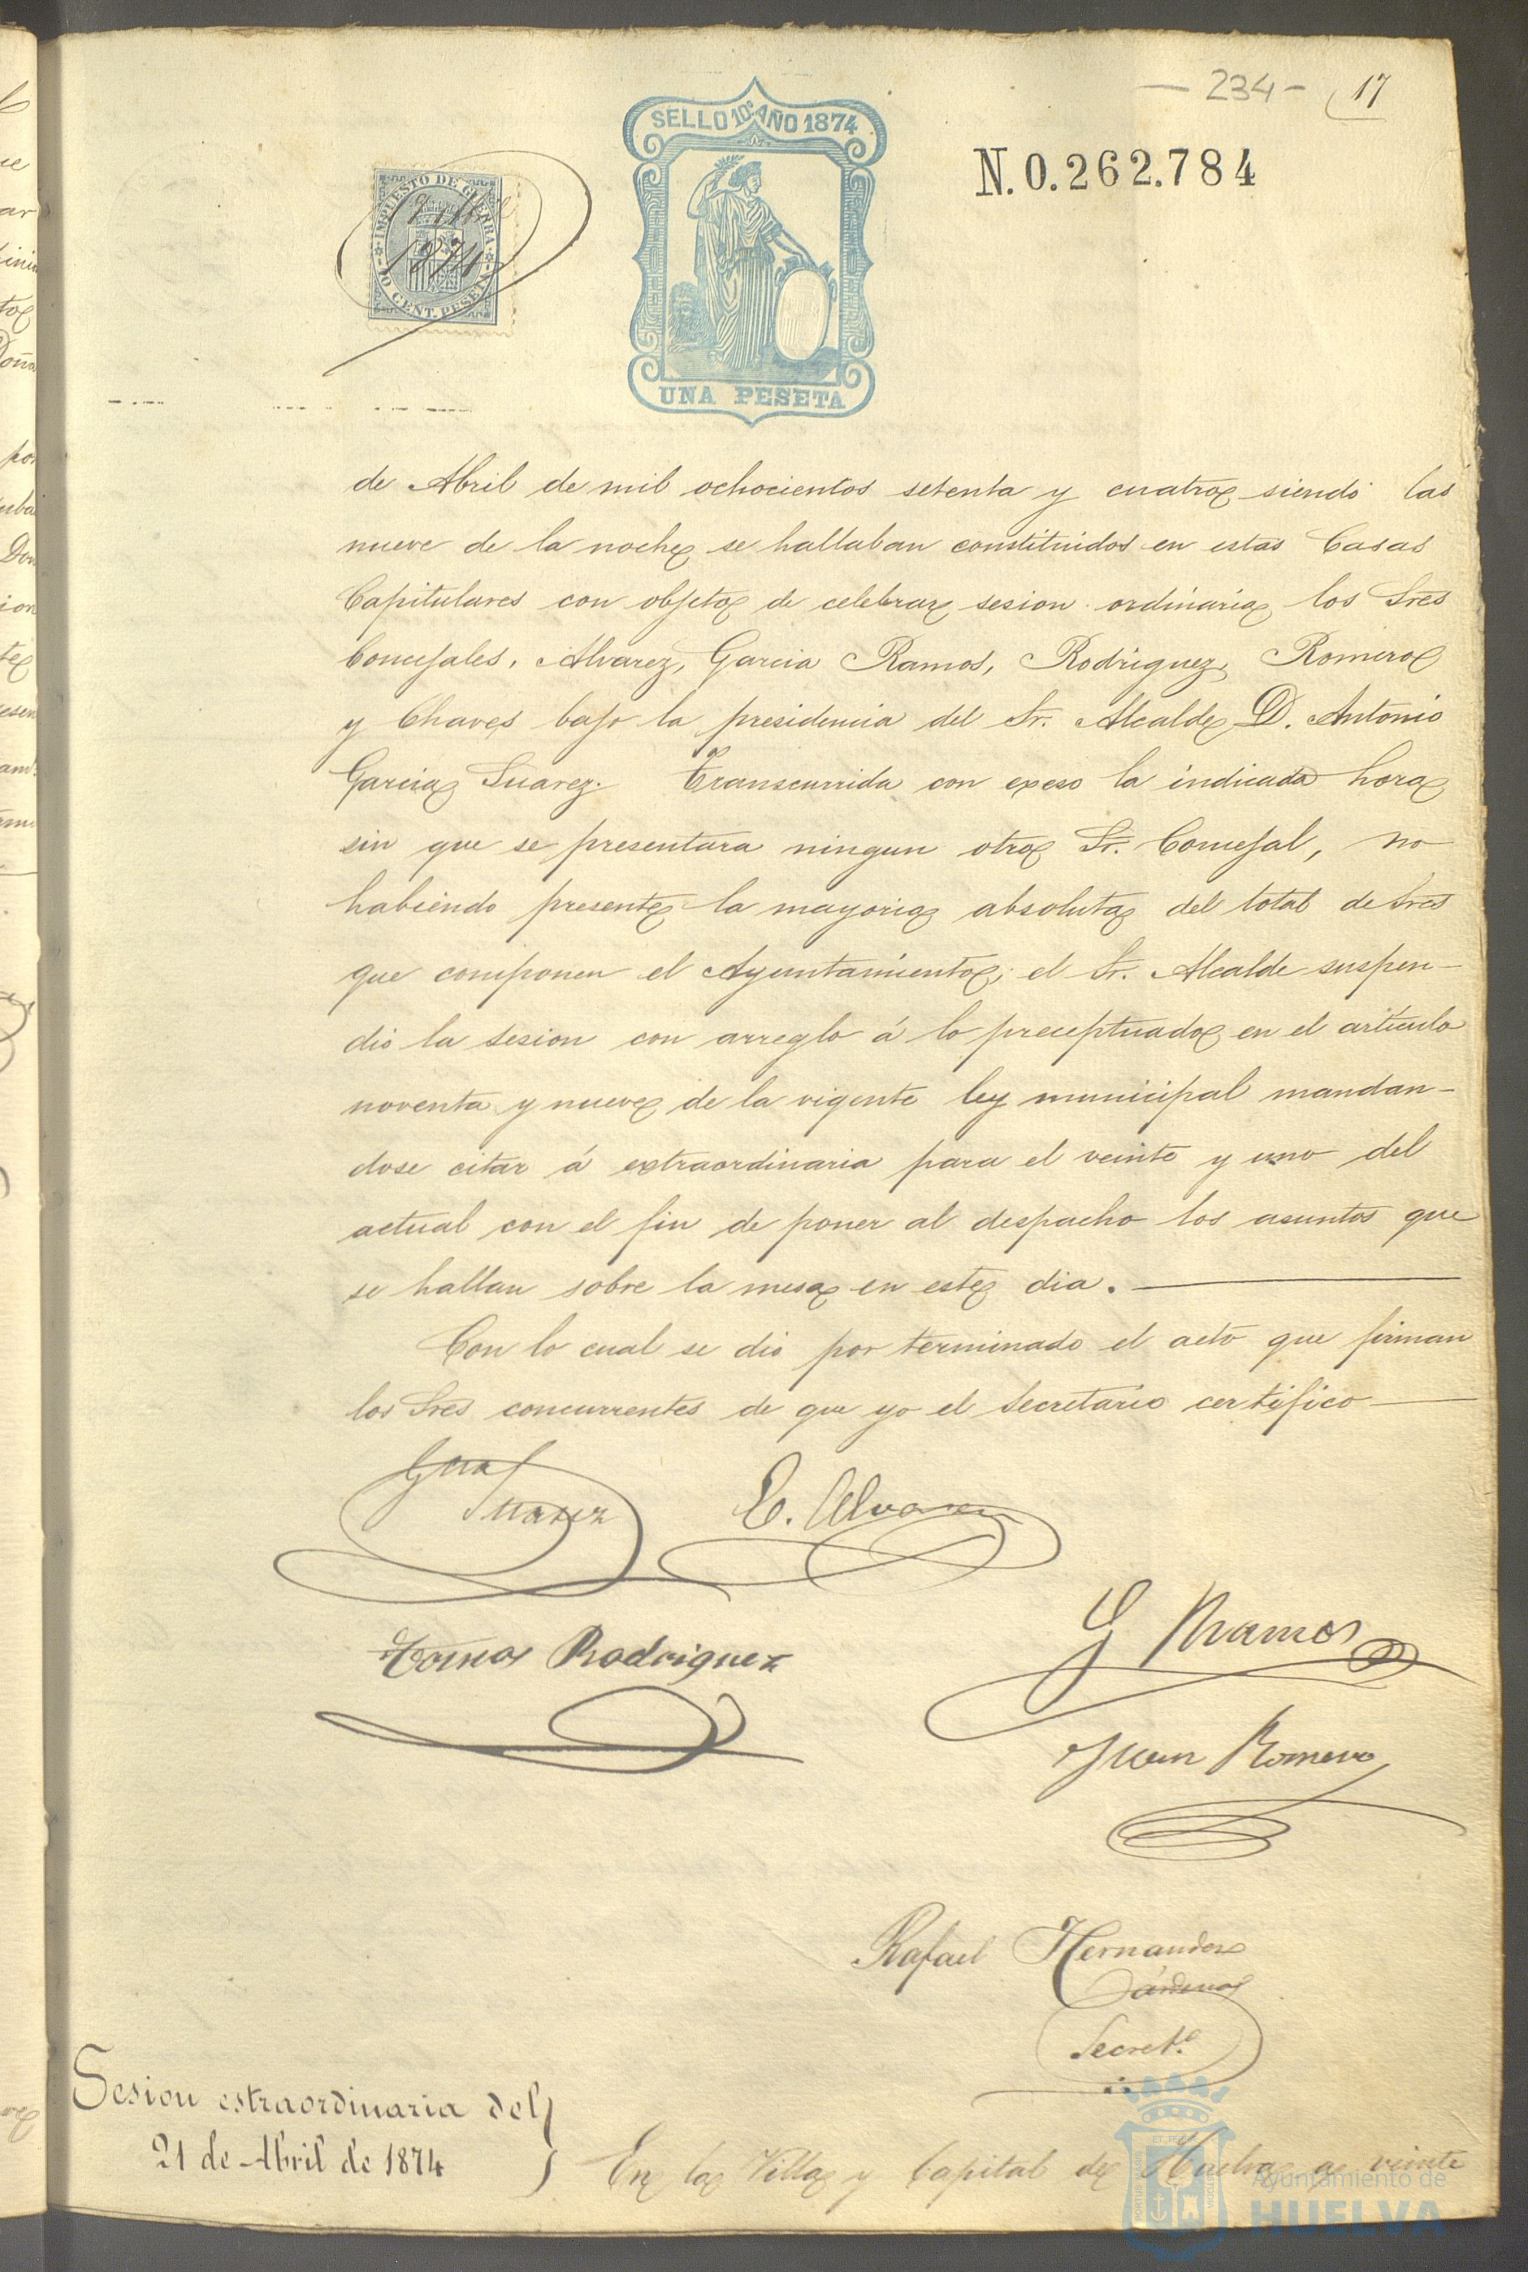 — 234 — 17
SELLO 10º AÑO 1874
N. 0.262.784
IMPUESTO DE GUERRA
1874
10 CENT. PESETA
UNA PESETA
de Abril de mil ochocientos setenta y cuatro siendo las
nueve de la noche se hallaban constituidos en estas Casas
Capitulares con objeto de celebrar sesion ordinaria los Sres
Concejales, Alvarez, Garcia Ramos, Rodriguez, Romero
y Chaves bajo la presidencia del Sr. Alcalde D. Antonio
Garcia Suarez. Transcurrida con exeso la indicada hora
sin que se presentara ningun otro Sr. Concejal, no
habiendo presente la mayoria absoluta del total de Sres
que componen el Ayuntamiento; el Sr. Alcalde suspen-
dió la sesion con arreglo á lo preceptuado en el artículo
noventa y nueve de la vigente ley municipal mandan-
dose citar á extraordinaria para el veinte y uno del
actual con el fin de poner al despacho los asuntos que
se hallan sobre la mesa en este dia. —
Con lo cual se dió por terminado el acto que firman
los Sres concurrentes de que yo el Secretario certifico —
Suarez
E. Alvarez
G Ramos
Tomas Rodriguez
Juan Romero
Rafael Hernandez
Cárdenas
Secretº
Sesion estraordinaria del
21 de Abril de 1874
En la Villa y Capital de Huelva a veinte
Ayuntamiento de
HUELVA